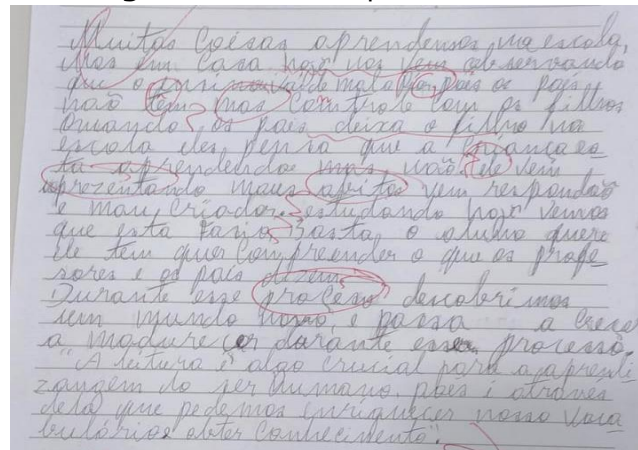 Muitas coisas aprendemos na escola,
Mas em casa nos vem observando
que o vai de mal pois os pais
não tem mas controle com os filhos
Quando os pais deixa o filho na
escola eles pensa que a criança es-
ta aprendendo mas não ele vem
aprezentando maus abitos vem respondão
e mau criador estudando hoje vemos
que esta basta o aluno quere
ele tem quer compreender o que os profe-
sores e os pais dizem
Durante esse proceso descobrimos
um mundo novo, e passa a crecer
a madurecer durante esse processo.
"A leitura é algo crucial para a aprendi-
zangem do ser humano, pois i através
dela que pedemos enriquecer nosso voca
bulários obter conhecimento".